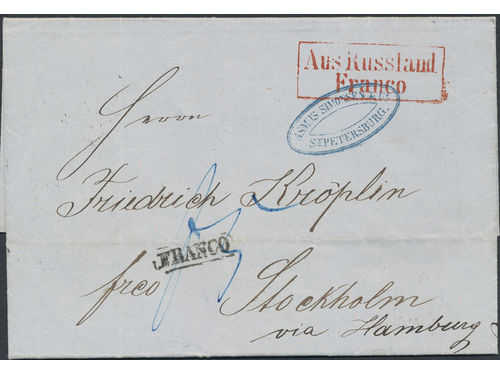 Aus Russland
Franco
ASMUS SIMONSEN & Co
St PETERSBURG.
Herrn
Friedrich Kröplin
FRANCO
frco Stockholm
via Hamburg